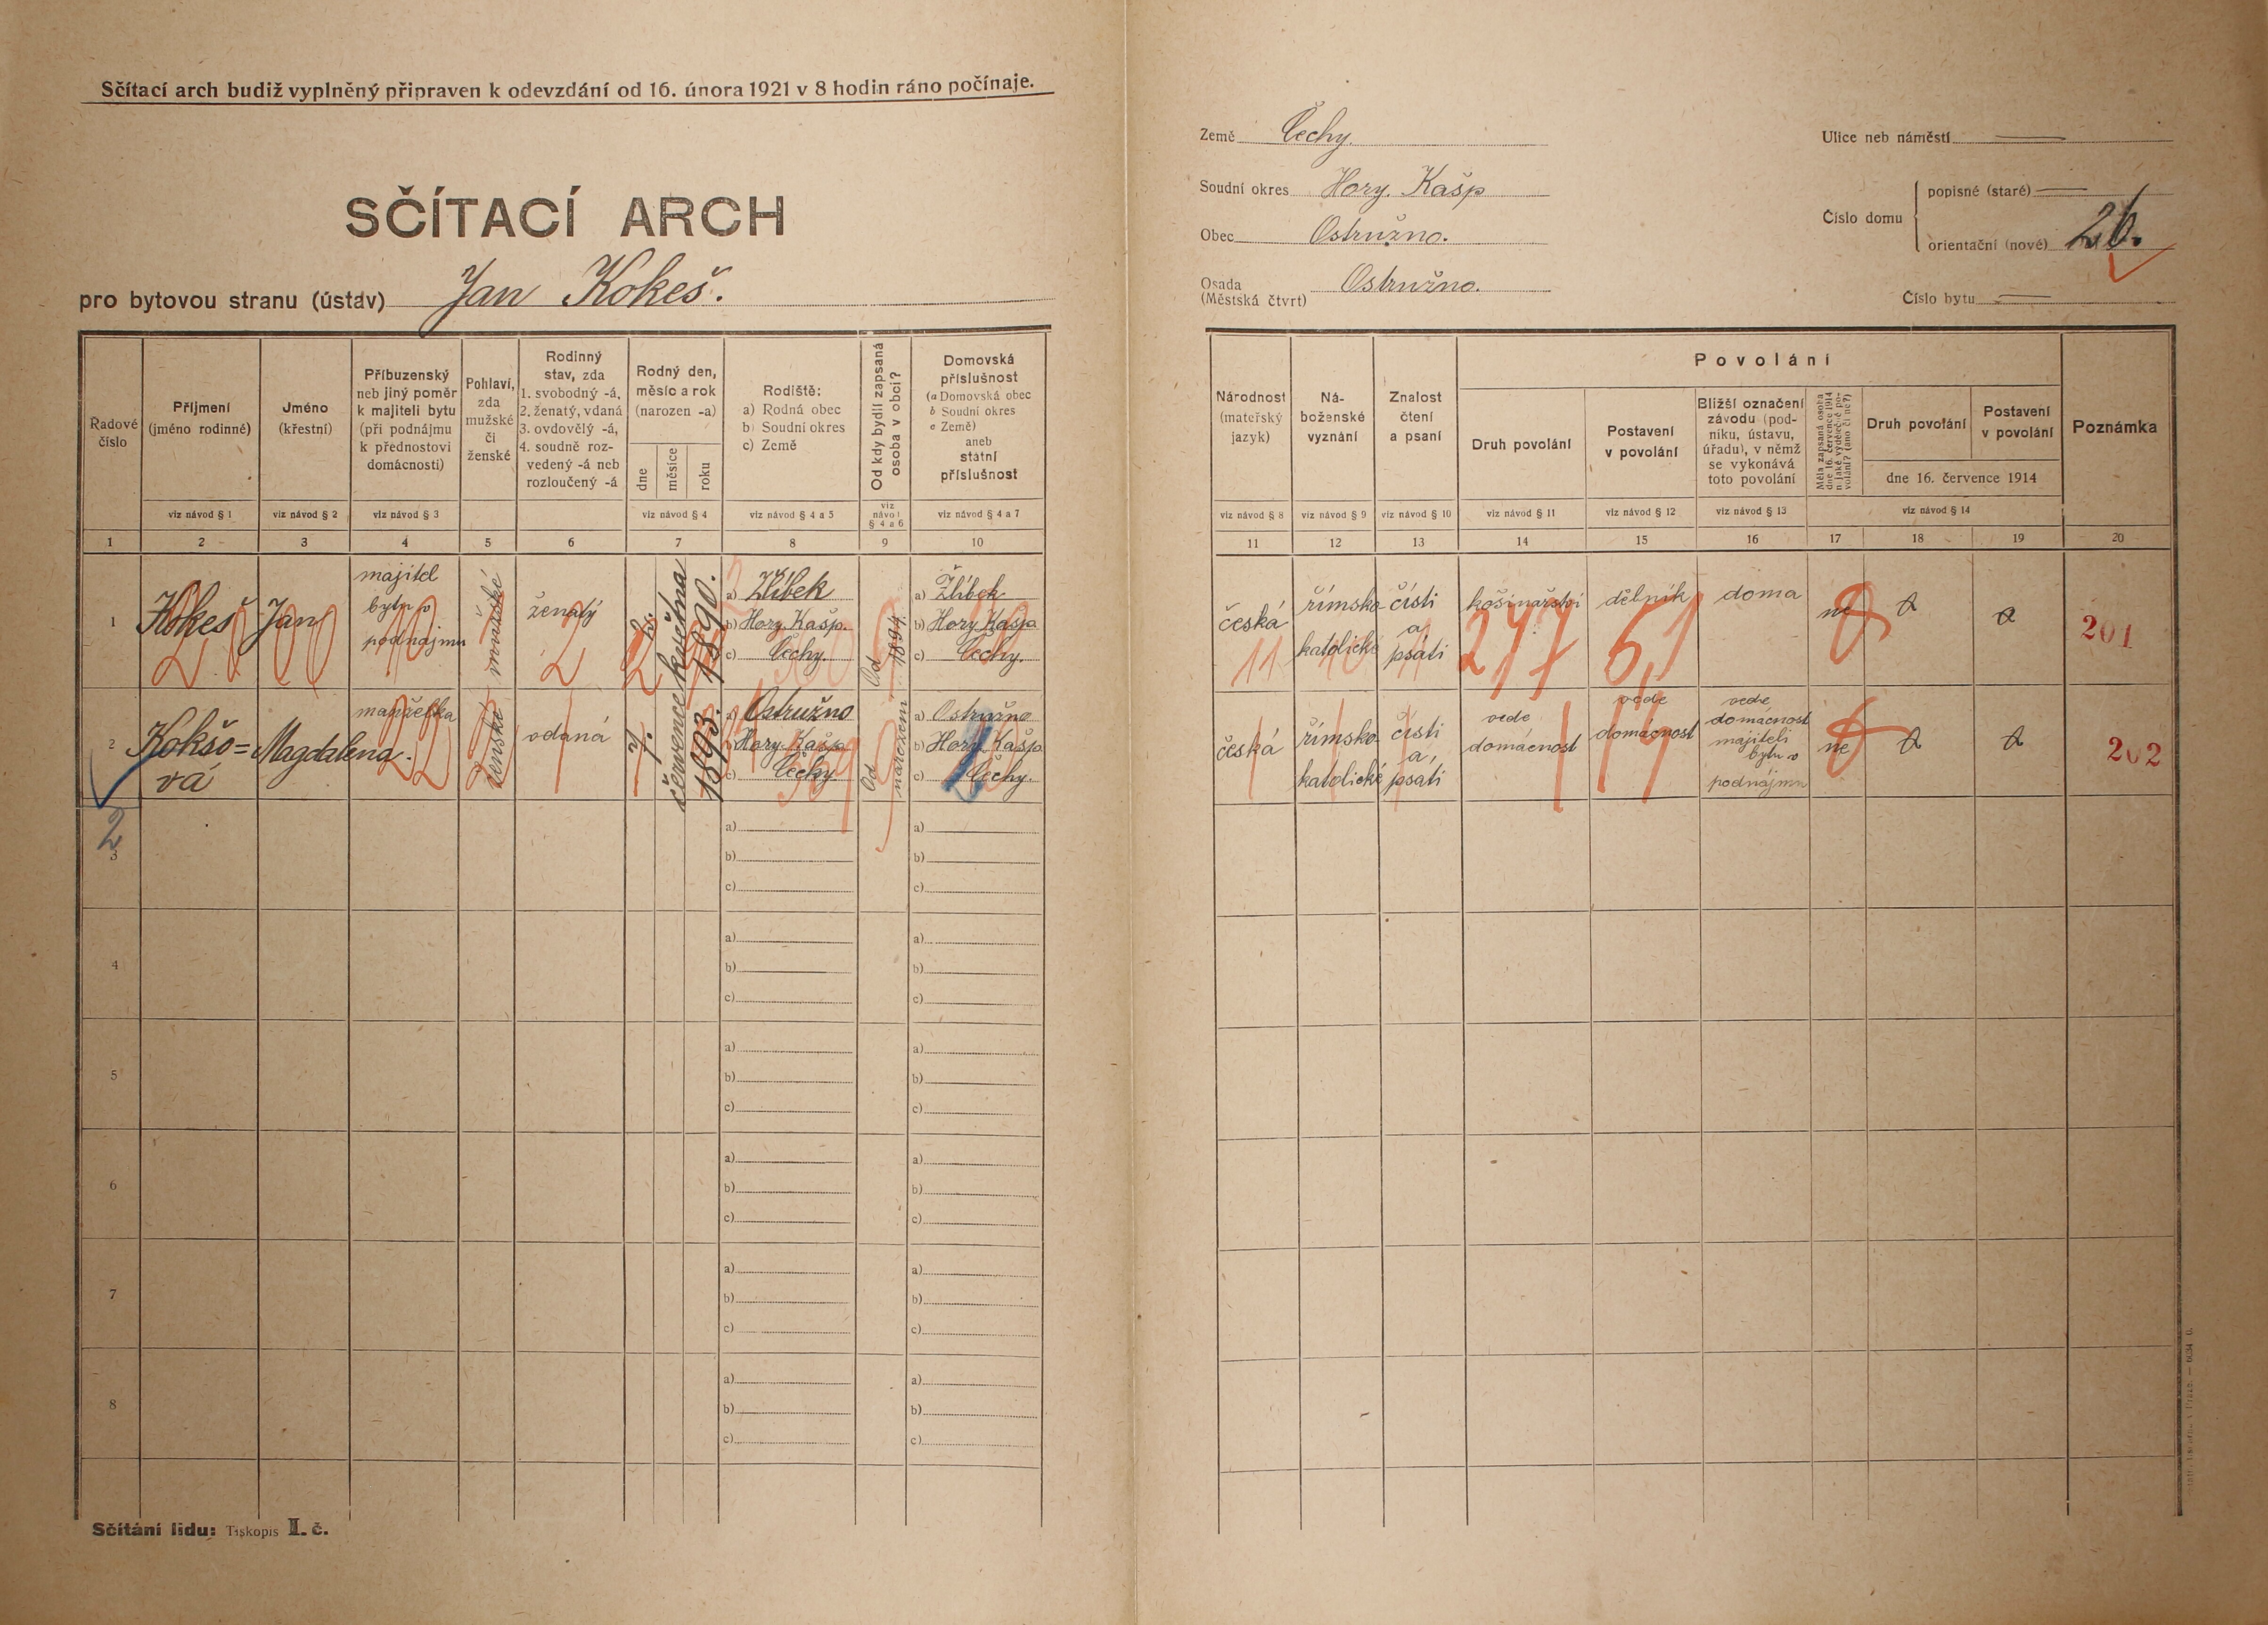 Sčítací arch budiž vyplněný připraven k odevzdání od 16. února 1921 v 8 hodin ráno počínaje.
SČÍTACÍ ARCH
pro bytovou stranu (ústav) Jan Kokeš.
Země Čechy.
Soudní okres Hory. Kašp
Obec Ostružno.
Osada Ostružno.
(Městská čtvrt)
Ulice neb náměstí
Číslo domu
popisné (staré)
orientační (nové) 26.
Číslo bytu
Řadové číslo
Příjmení
(jméno rodinné)
Jméno
(křestní)
Příbuzenský
neb jiný poměr
k majiteli bytu
(při podnájmu
k přednostovi
domácnosti)
Pohlaví,
zda
mužské
či
ženské
Rodinný
stav, zda
1. svobodný -á,
2. ženatý, vdaná
3. ovdovělý -á,
4. soudně roz-
vedený -á neb
rozloučený -á
Rodný den,
měsíc a rok
(narozen -a)
dne
měsíce
roku
Rodiště:
a) Rodná obec
b) Soudní okres
c) Země
Od kdy bydlí zapsaná
osoba v obci?
Domovská
příslušnost
(a Domovská obec
b Soudní okres
c Země)
aneb
státní
příslušnost
Národnost
(mateřský
jazyk)
Ná-
boženské
vyznání
Znalost
čtení
a psaní
Povolání
Druh povolání
Postavení
v povolání
Bližší označení
závodu (pod-
niku, ústavu,
úřadu), v němž
se vykonává
toto povolání
Měla zapsaná osoba
dne 16. července 1914
nějaké výdělečné po-
volání? (ano či ne?)
Druh povolání
Postavení
v povolání
dne 16. července 1914
Poznámka
viz návod § 1
viz návod § 2
viz návod § 3
viz návod § 4
viz návod § 4 a 5
viz návod § 4 a 6
viz návod § 4 a 7
viz návod § 8
viz návod § 9
viz návod § 10
viz návod § 11
viz návod § 12
viz návod § 13
viz návod § 14
1 2 3 4 5 6 7 8 9 10
11 12 13 14 15 16 17 18 19 20
1
Kokeš
Jan
majitel
bytu v
podnájmu
mužské
ženatý
2
května
1890.
a) Žlíbek
b) Hory. Kašp.
c) Čechy.
Od
1894.
a) Žlíbek
b) Hory Kašp
c) Čechy.
česká
římsko
katolické
čísti
a
psáti
košinařství
dělník
doma
ne
201
11
277
6,1
2
Kokšo=
vá
Magdalena.
manželka
ženské
vdaná
7.
července
1893.
a) Ostružno
b) Hory. Kašp
c) Čechy.
Od
narození
a) Ostružno
b) Hory Kašp
c) Čechy.
česká
římsko
katolické
čísti
a,
psati
vede
domácnost
vede
domácnost
vede
domácnost
majiteli
bytu v
podnájmu
ne
202
2
3
a)
b)
c)
a)
b)
c)
4
a)
b)
c)
a)
b)
c)
5
a)
b)
c)
a)
b)
c)
6
a)
b)
c)
a)
b)
c)
7
a)
b)
c)
a)
b)
c)
8
a)
b)
c)
a)
b)
c)
Sčítání lidu: Tiskopis I. č.